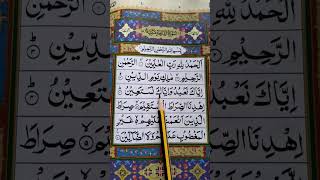 بِسْمِ اللّٰهِ الرَّحْمٰنِ الرَّحِيْمِ
اَلْحَمْدُ لِلّٰهِ رَبِّ الْعٰلَمِيْنَ ۙ الرَّحْمٰنِ
الرَّحِيْمِ ۙ مٰلِكِ يَوْمِ الدِّيْنِ ؕ
اِيَّاكَ نَعْبُدُ وَاِيَّاكَ نَسْتَعِيْنُ ؕ
اِهْدِنَا الصِّرَاطَ الْمُسْتَقِيْمَ ۙ صِرَاطَ
الَّذِيْنَ اَنْعَمْتَ عَلَيْهِمْ ۙ غَيْرِ
الْمَغْضُوْبِ عَلَيْهِمْ وَلَا الضَّآلِّيْنَ